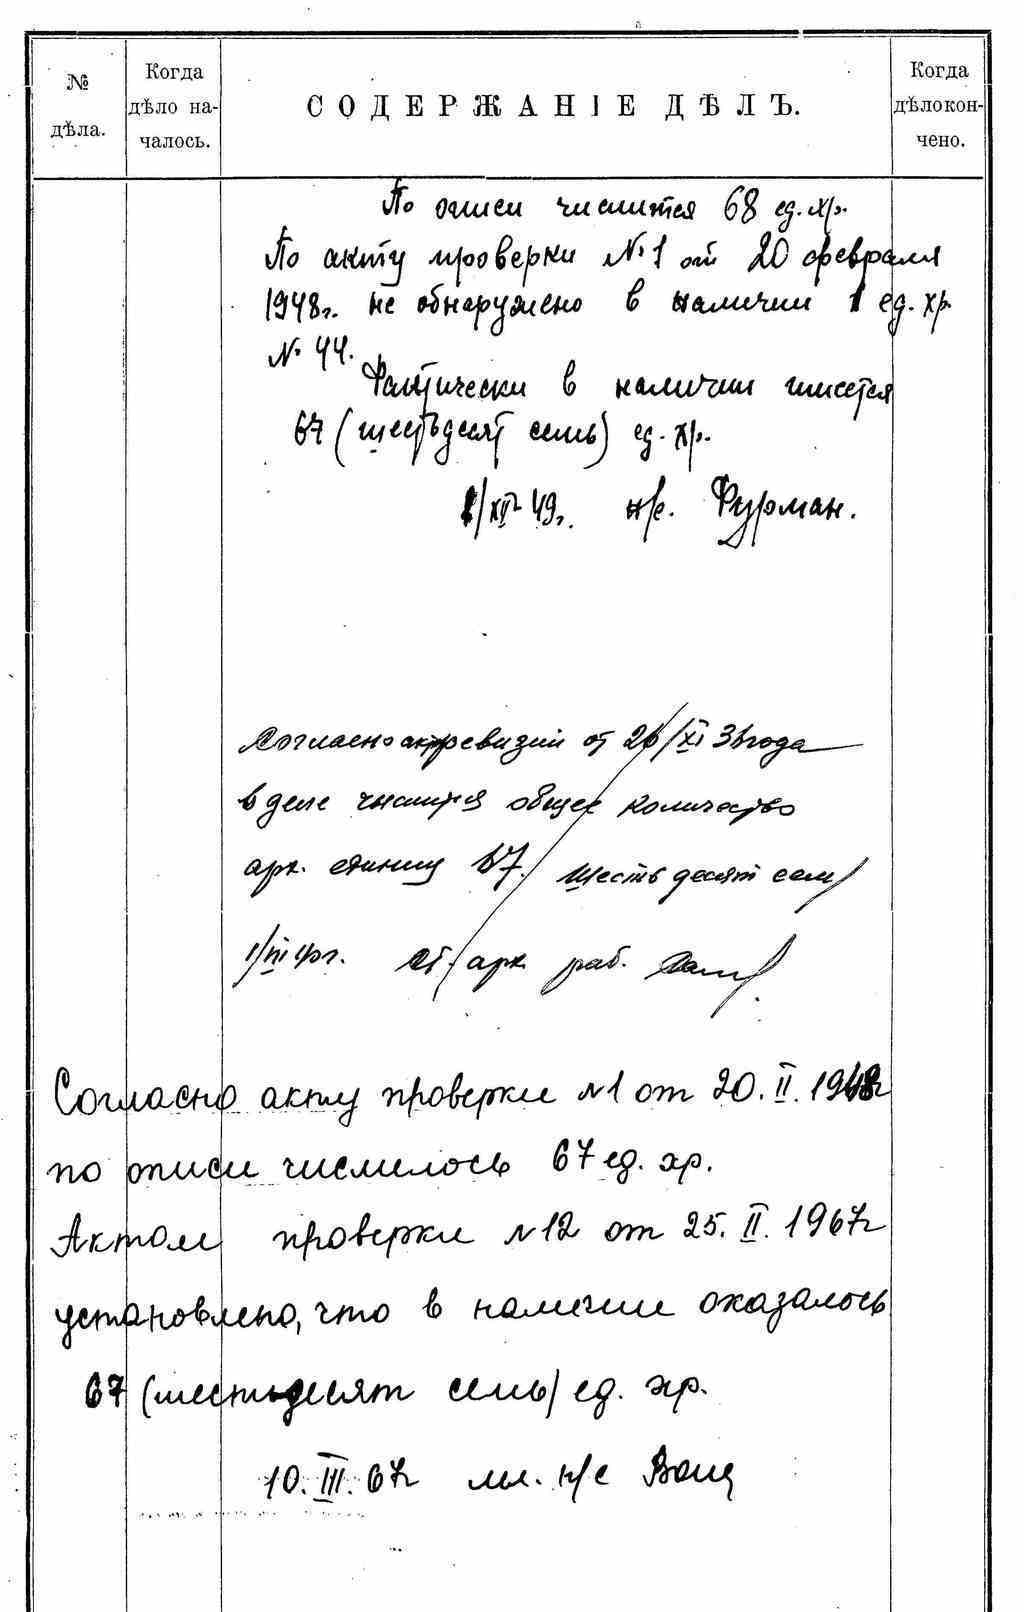 № дѣла.
Когда дѣло на-чалось.
СОДЕРЖАНІЕ ДѢЛЪ.
Когда дѣло кон-чено.
По описи числится 68 ед. хр.
По акту проверки №1 от 20 февраля
1948г. не обнаружено в наличии 1 ед. хр.
№ 44.
Фактически в наличии имеется
67 (шестьдесят семь) ед. хр.
/XII 49г. н/с. Фурман.
Согласно акт ревизии от 26/XI 3 года
в деле числится общее количество
арх. единиц 67. Шестьдесят семь
1/III г. Ст. арх. раб.
Согласно акту проверки №1 от 20.II.1948г
по описи числилось 67 ед. хр.
Актом проверки №12 от 25.II.1967г
установлено, что в наличии оказалось
67 (шестьдесят семь) ед. хр.
10.III.67г мл. н/с